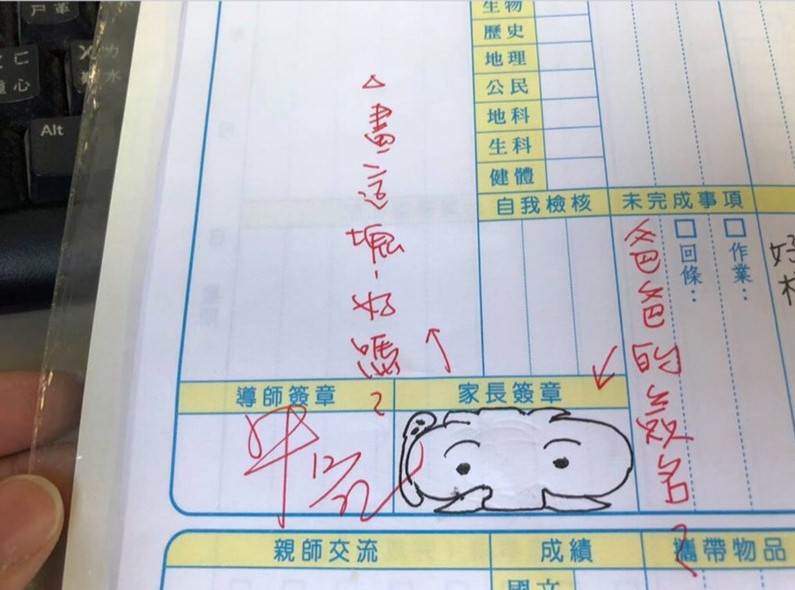 Alt
心
水
生物
歷史
地理
公民
地科
生科
健體
自我檢核
未完成事項
□作業：
□回條：
好
爸爸的簽名?
△畫這塊，好嗎?
導師簽章
家長簽章
12/22
親師交流
成績
攜帶物品
國文